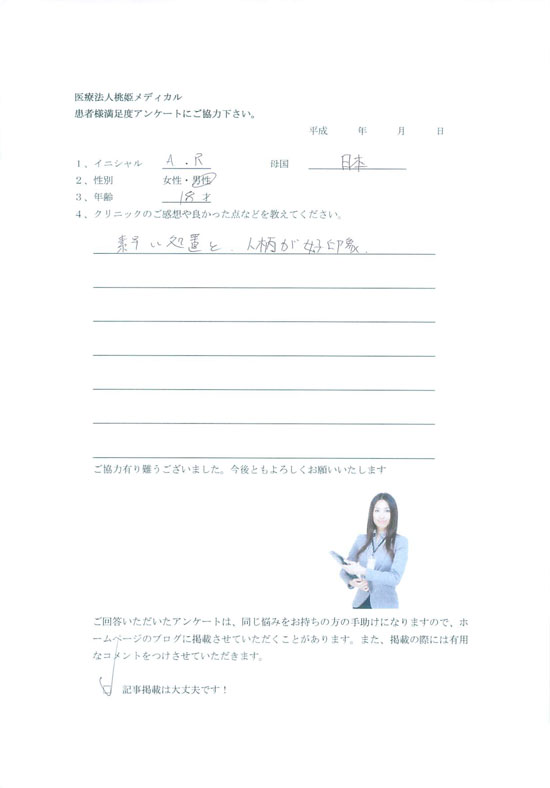 医療法人桃姫メディカル
患者様満足度アンケートにご協力下さい。
平成　　年　　月　　日
1、イニシャル　A．R　母国　日本
2、性別　女性・男性
3、年齢　18才
4、クリニックのご感想や良かった点などを教えてください。
素早い処置と、人柄が好印象。
ご協力有り難うございました。今後ともよろしくお願いいたします
ご回答いただいたアンケートは、同じ悩みをお持ちの方の手助けになりますので、ホ
ームページのブログに掲載させていただくことがあります。また、掲載の際には有用
なコメントをつけさせていただきます。
記事掲載は大丈夫です！